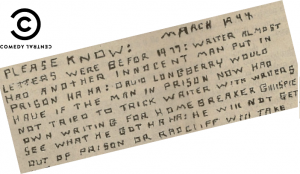 COMEDY CENTRAL
MARCH 1998
PLEASE KNOW:
LETTERS WERE BEFOR 1977: WRITER ALMOST
HAD ANOTHER INNOCENT MAN PUT IN
PRISON HA HA: DAVID LONGBERRY WOULD
HAVE IF THE MAN IN PRISON NOW HAD
NOT TRIED TO TRICK WRITER WITH WRITERS
OWN WRITING FOR HOMEBREAKER GILLISPIE
SEE WHAT HE GOT HAHA: HE WILL NOT GET
OUT OF PRISON OR RADCLIFF WITH TAKE